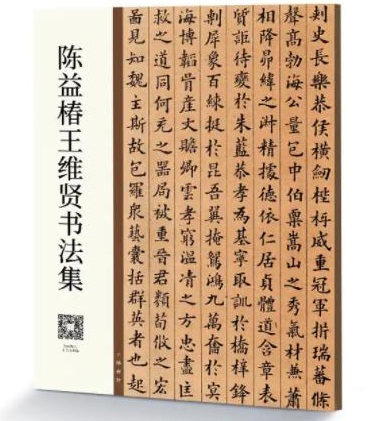 陈益椿王维贤书法集
刾史長樂恭侯橫劒梐栫威重冠軍析瑞蕃條
聲高勃海公量包申伯稟嵩山之秀氣材兼蕭
相降昴緯之淑精據德依仁居貞體道含章表
質詎待變於朱藍恭孝為基寧取訓於橋梓鋒
剸犀象百練挺於昆吾翼掩鴛鴻九萬奮於冥
海博韜骨産文贍卿雲孝窮溫清之方忠盡匡
救之道同何充之器局被重晉君類荀攸之宏
啚見知魏主斯故包羅衆藝囊括群英者也起